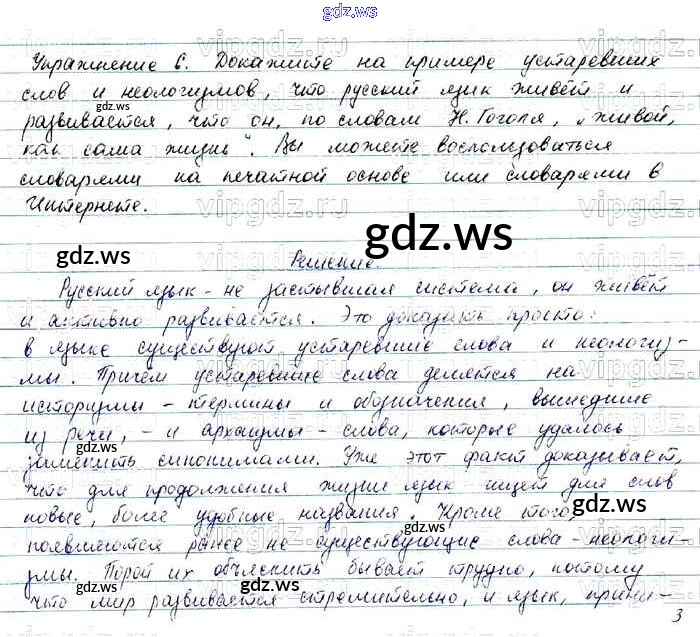 gdz.ws
Упражнение 6. Докажите на примере устаревших
слов и неологизмов, что русский язык живёт и
gdz.ws
развивается, что он, по словам Н. Гоголя, „живой,
как сама жизнь". Вы можете воспользоваться
словарями на печатной основе или словарями в
Интернете.
vipgdz.ru
gdz.ws
gdz.ws
Решение.
Русский язык - не застывшая система, он живёт
и активно развивается. Это доказать просто:
в языке существуют устаревшие слова и неологиз-
мы. Причём устаревшие слова делятся на
историзмы - термины и обозначения, вышедшие
из речи, - и архаизмы - слова, которые удалось
gdz.ws
заменить синонимами. Уже этот факт доказывает,
что для продолжения жизни язык ищет для слов
новые, более удобные названия. Кроме того,
gdz.ws
появляются ранее не существующие слова - неологи-
змы. Порой их объяснить бывает трудно, потому
gdz.ws
gdz.ws
что мир развивается стремительно, и язык, прини-
3